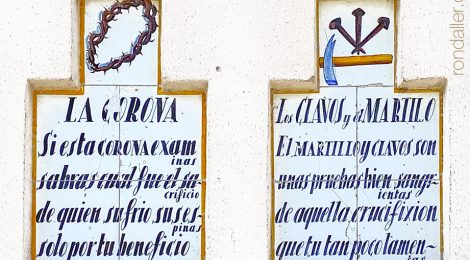 LA CORONA
Si esta CORONA exam
inas
sabras cual fue el sa-
crificio
de quien sufrio sus es-
pinas
solo por tu beneficio
Los CLAVOS y el MARTILLO
EL MARTILLO y CLAVOS son
unas pruebas bien sangr-
ientas
de aquella crucifixion
que tu tan poco lamen-
tas
rondaller.